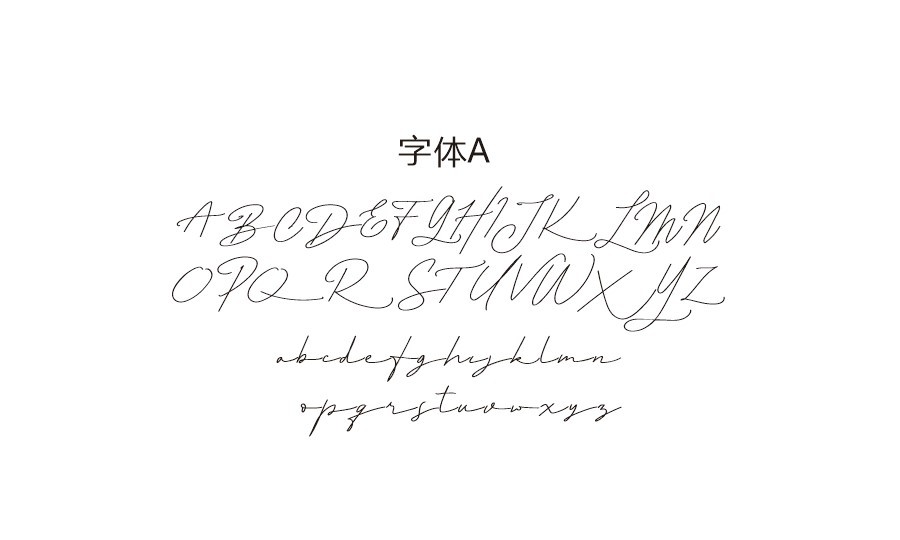 字体A
ABCDEFGHIJKLMN
OPQRSTUVWXYZ
abcdefghijklmn
opqrstuvwxyz